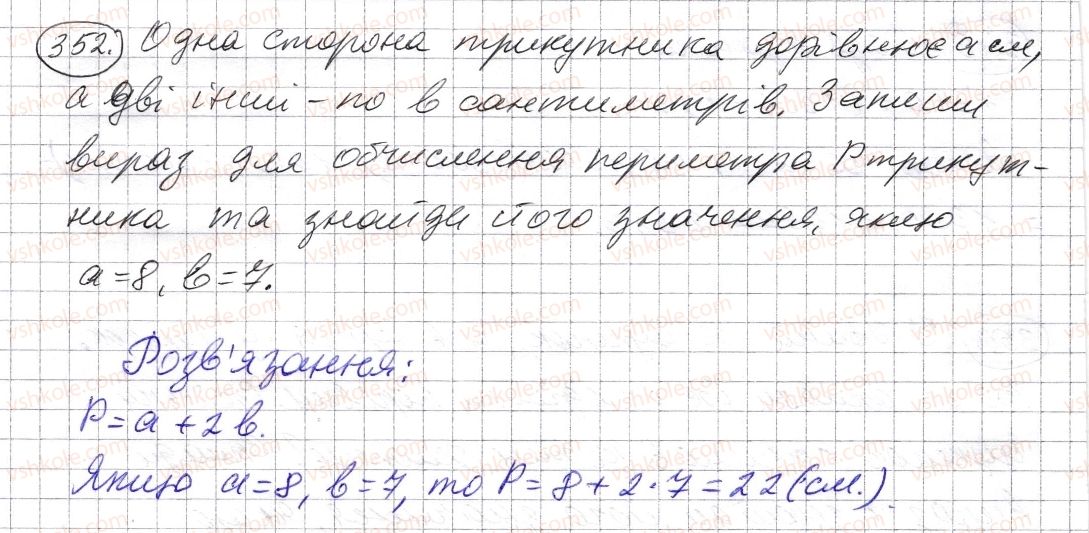 352. Одна сторона трикутника дорівнює a см,
а дві інші - по в сантиметрів. Запиши
вираз для обчислення периметра P трикут-
ника та знайди його значення, якщо
a=8, в=7.
Розв'язання:
P=a+2в.
Якщо a=8, в=7, то P=8+2·7=22(см.).